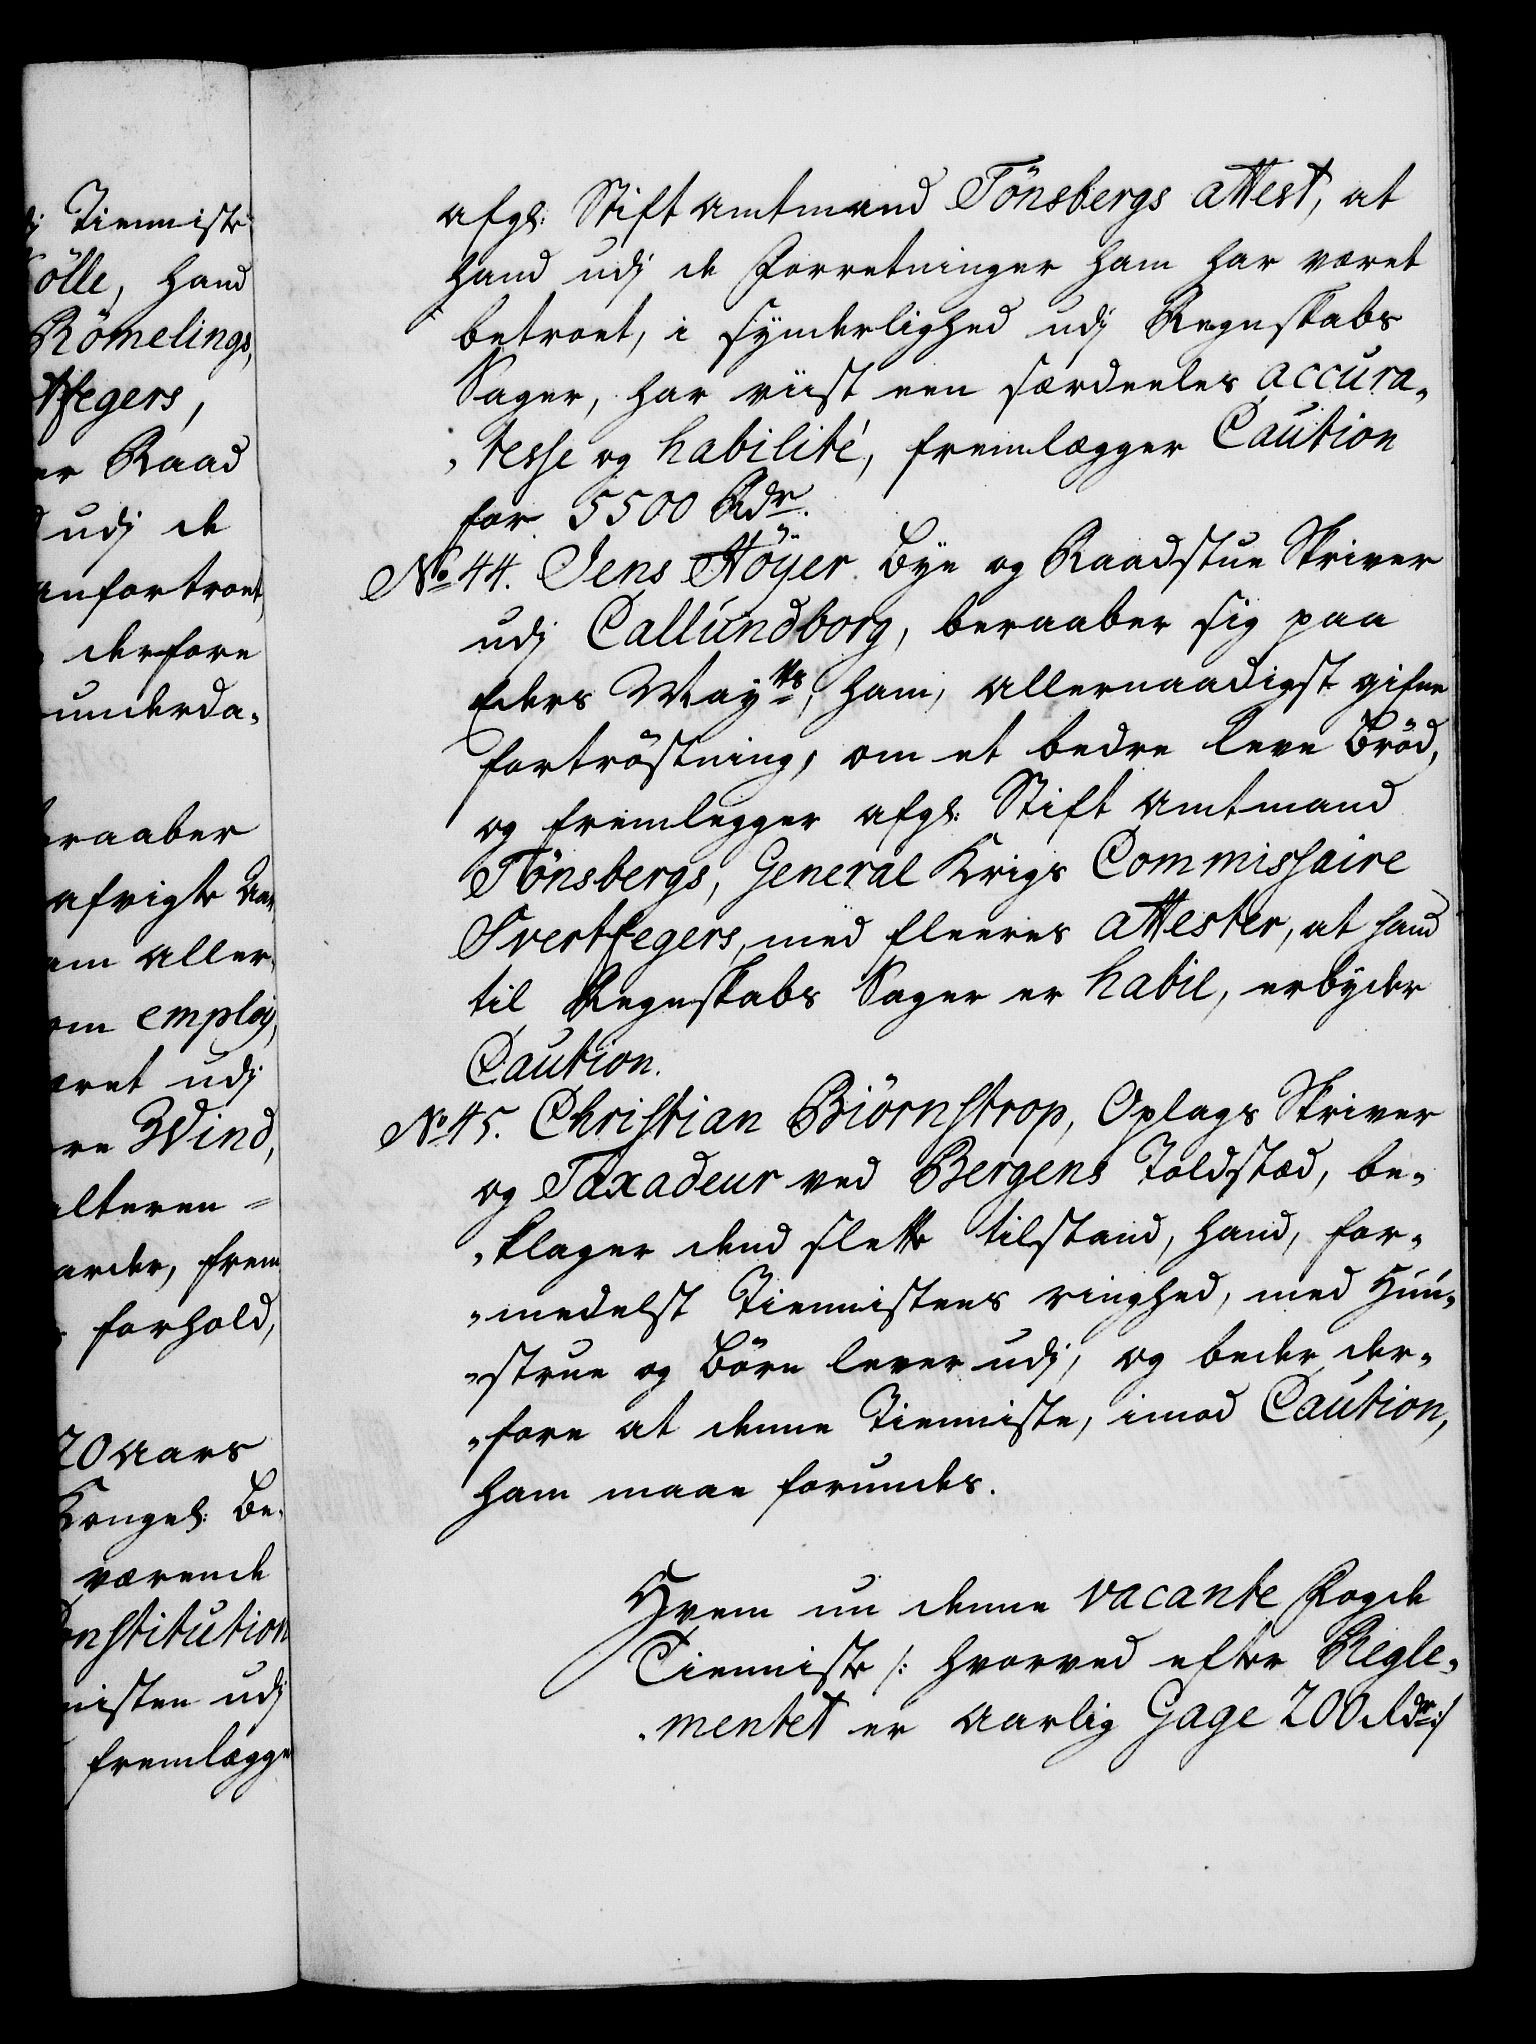 j Tienniste
ölle, hand
Römelings,
tfegers,
er Raad
udj de
anfortroet,
derfore
underda„
eraaber
afvigte Aar
am aller„
om emploj,
æret udj
re Wind,
alteren =
arder, frem
forhold,
20 Aars
Kongel: Be„
værende
onstitution
nisten udj
fremlægge
afgl: Stift Amtmand Tönsbergs attest, at
hand udj de Forretninger ham har været
betroet, i synderlighed udj Regnskabs
Sager, har viist een særdeeles accura„
„tesse og habilité, fremlægger Caution
for 5500 Rdr.
No 44. Jens Höyer. Bye og Raadstue Skriver
udj Callundborg, beraaber sig paa
Eders Mayts, ham, allernaadigst gifne
fortröstning, om et bedre leve Bröd,
og fremlegger afgl: Stift Amtmand
Tönsbergs, General Krigs Commissaire
Svertfegers, med fleeres attester, at hand
til Regnskabs Sager er habil, erbyder
Caution.
No 45. Christian Biörnstrop, Oplags Skriver
og Taxadeur ved Bergens Toldstæd, be„
„klager dend slette tilstand, hand, for„
„medelst Tiennistens ringhed, med Huu„
„strue og Börn lever udj, og beder der„
„fore at denne Tienniste, imod Caution,
ham maae forundes.
Hvem nu denne vacante Fogde
Tienniste /: hvorved efter Regle„
„mentet er Aarlig Gage 200 Rdr:/